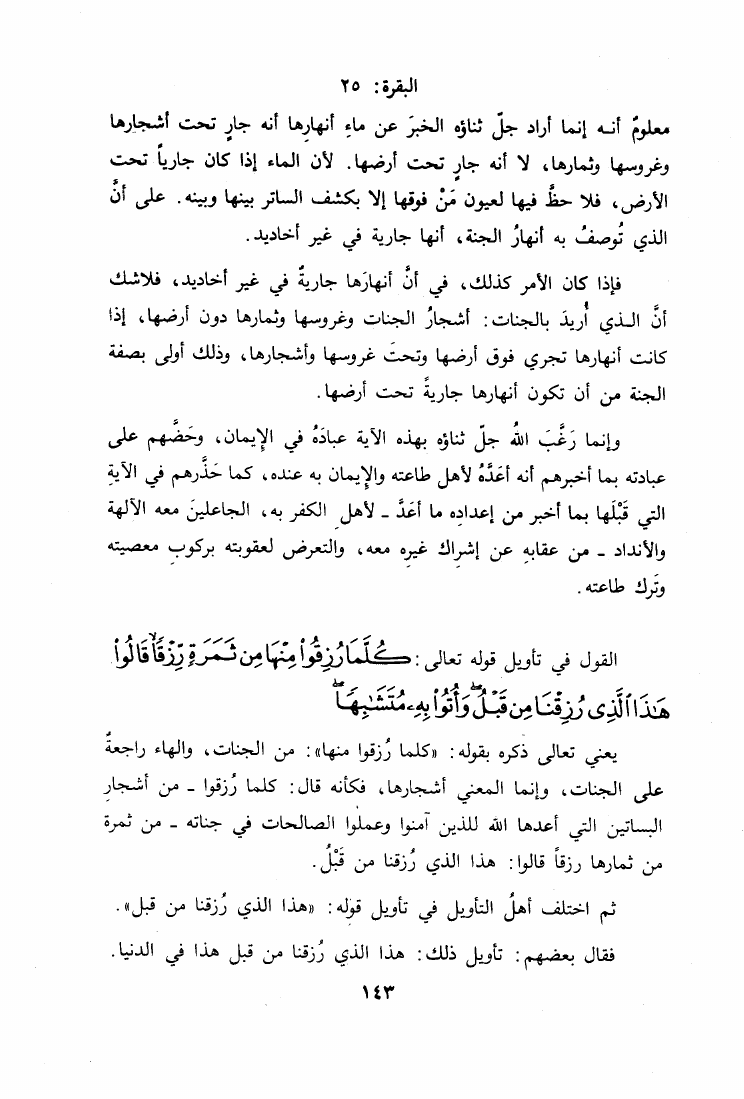 البقرة: ٢٥
معلومٌ أنـه إنما أراد جلّ ثناؤه الخبرَ عن ماءِ أنهارِها أنه جارٍ تحت أشجارها
وغروسها وثمارها، لا أنه جارٍ تحت أرضها. لأن الماء إذا كان جارياً تحت
الأرض، فلا حظَّ فيها لعيون مَنْ فوقها إلا بكشف الساتر بينها وبينه. على أنَّ
الذي تُوصفُ به أنهارُ الجنة، أنها جارية في غير أخاديد.
فإذا كان الأمر كذلك، في أنَّ أنهارَها جاريةٌ في غير أخاديد، فلاشك
أنَّ الـذي أُريدَ بالجنات: أشجارُ الجنات وغروسها وثمارها دون أرضها، إذا
كانت أنهارها تجري فوق أرضها وتحتَ غروسها وأشجارها، وذلك أولى بصفة
الجنة من أن تكون أنهارها جاريةً تحت أرضها.
وإنما رَغَّبَ اللهُ جلّ ثناؤه بهذه الآية عبادَهُ في الإيمان، وحَضَّهم على
عبادته بما أخبرهم أنه أعَدَّهُ لأهل طاعته والإيمان به عنده، كما حَذَّرهم في الآيةِ
التي قَبْلَها بما أخبر من إعدادِه ما أعَدَّ ـ لأهلِ الكفر به، الجاعلينَ معه الآلهة
والأنداد ـ من عقابهِ عن إشراك غيرِه معه، والتعرض لعقوبته بركوبِ معصيته
وتَرك طاعته.
القول في تأويل قوله تعالى: كُلَّمَا رُزِقُوا۟ مِنْهَا مِن ثَمَرَةٍ رِّزْقًا ۙ قَالُوا۟
هَـٰذَا ٱلَّذِى رُزِقْنَا مِن قَبْلُ ۖ وَأُتُوا۟ بِهِۦ مُتَشَـٰبِهًا ۖ
يعني تعالى ذكره بقوله: «كلما رُزقوا منها»: من الجنات، والهاء راجعةٌ
على الجنات، وإنما المعني أشجارها، فكأنه قال: كلما رُزقوا ـ من أشجارِ
البساتين التي أعدها الله للذين آمنوا وعملوا الصالحات في جناته ـ من ثمرة
من ثمارها رزقاً قالوا: هذا الذي رُزقنا من قَبْلُ.
ثم اختلف أهلُ التأويل في تأويل قوله: «هذا الذي رُزقنا من قبل».
فقال بعضهم: تأويل ذلك: هذا الذي رُزقنا من قبل هذا في الدنيا.
١٤٣